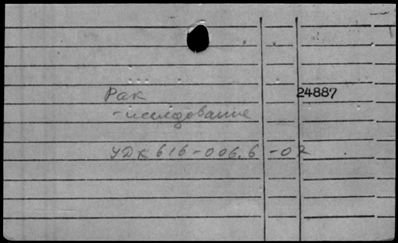 Рак
24887
- исследование
УДК 616-006.6-02